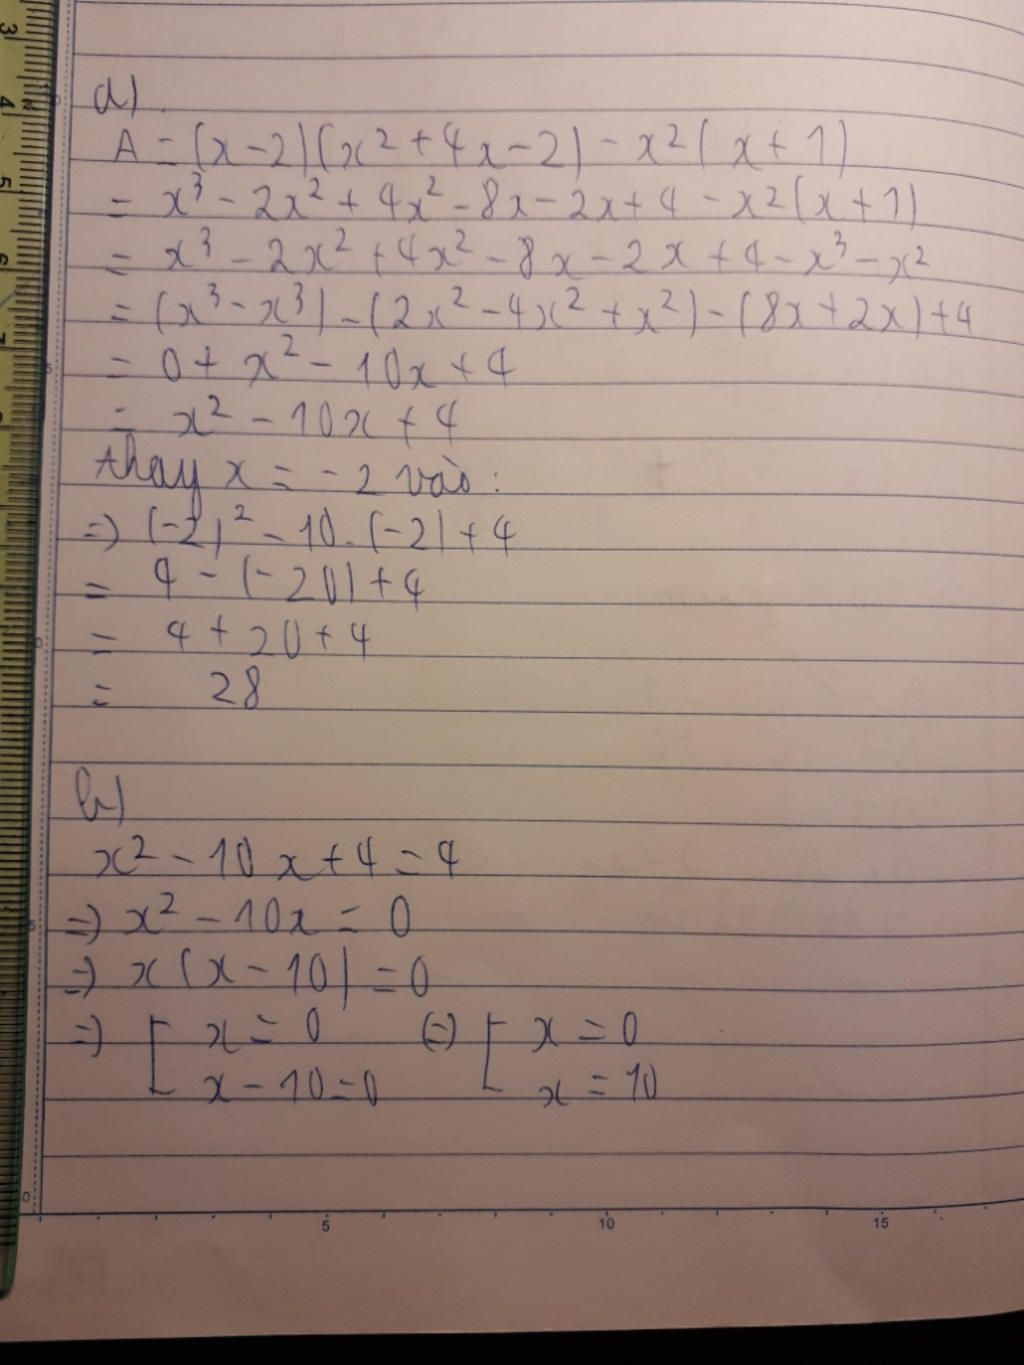 a)
A = (x-2)(x²+4x-2) - x²(x+1)
= x³ - 2x² + 4x² - 8x - 2x + 4 - x²(x+1)
= x³ - 2x² + 4x² - 8x - 2x + 4 - x³ - x²
= (x³ - x³) - (2x² - 4x² + x²) - (8x + 2x) + 4
= 0 + x² - 10x + 4
= x² - 10x + 4
thay x = -2 vào:
=> (-2)² - 10.(-2) + 4
= 4 - (-20) + 4
= 4 + 20 + 4
= 28
b)
x² - 10x + 4 = 4
=> x² - 10x = 0
=> x(x - 10) = 0
=> [ x = 0 (=) [ x = 0
x - 10 = 0 x = 10
5 10 15